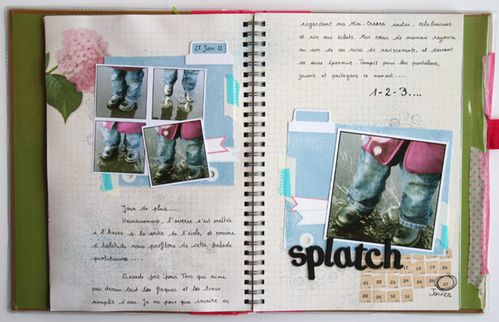 27 Janv 12
Jour de pluie.....
Heureusement, l'averse s'est arrêtée
à l'heure de la sortie de l'école, et comme
d'habitude nous profitons de cette balade
quotidienne .....
Grande joie pour qui aime
par dessus tout les flaques et les trous
remplis d'eau. Je ne peux que sourire en
regardant ma Mini sauter, éclabousser
et rire aux éclats. Mon cœur de maman rayonne
au son de ces rires de ravissements, et devant
sa mine épanouie. Tampis pour les pantalons,
jouons et partageons ce moment.....
1-2-3....
splatch
Février